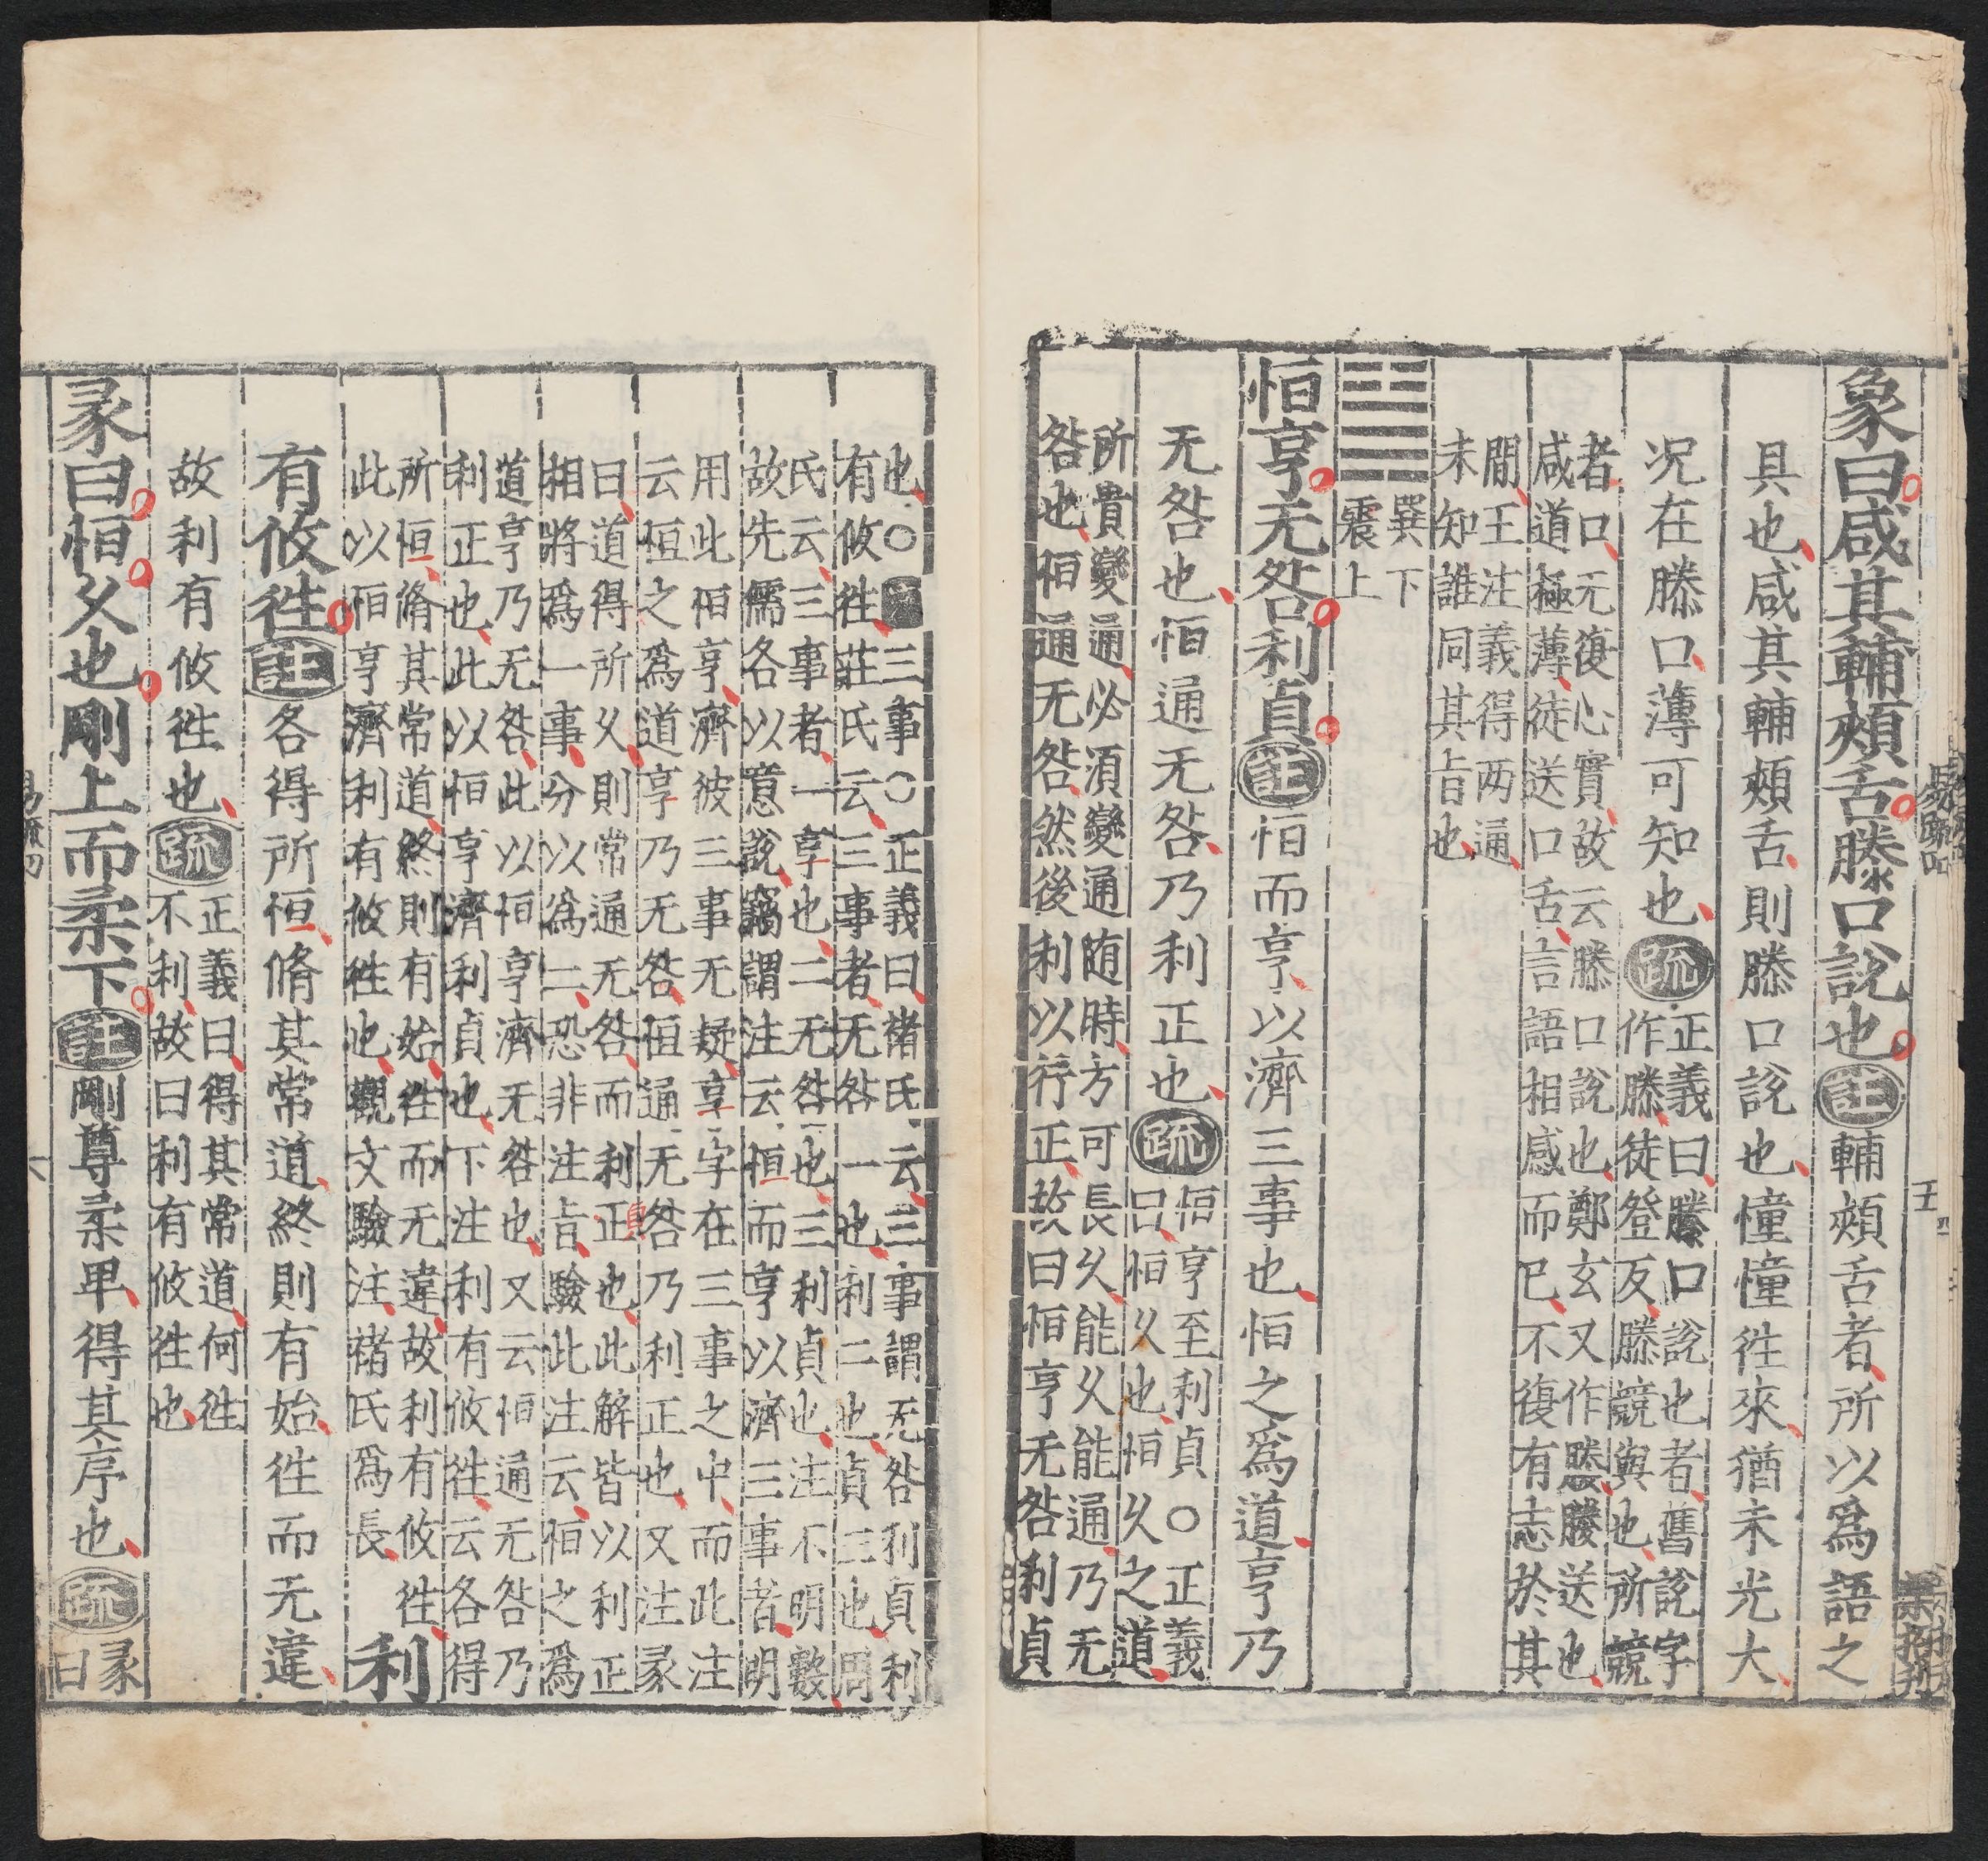 象曰咸其輔頰舌滕口說也註輔頰舌者所以爲語之
具也咸其輔頰舌則滕口說也憧憧徃來猶未光大
况在滕口薄可知也疏
正義曰滕口說也者舊說字
作滕徒登反滕競與也所競
者口无復心實故云滕口說也鄭玄又作媵媵送也
咸道極薄徒送口舌言語相感而已不復有志於其
間王注義得两通
未知誰同其旨也
巽下
震上
恒亨无咎利貞註恒而亨以濟三事也恒之爲道亨乃
无咎也恒通无咎乃利正也疏
恒亨至利貞○正義
曰恒久也恒久之道
所貴變通必須變通随時方可長久能久能通乃无
咎也恒通无咎然後利以行正故曰恒亨无咎利貞
也○疏三事○正義曰褚氏云三事謂无咎利貞利
有攸徃莊氏云三事者无咎一也利二也貞三也周
氏云三事者一亨也二无咎也三利貞也注不明數
故先儒各以意說竊謂注云恒而亨以濟三事者明
用此恒亨濟彼三事无疑亨字在三事之中而此注
云恒之爲道亨乃无咎恒通无咎乃利正也又注彖
曰道得所久則常通无咎而利正也此解皆以利正
相將爲一事分以爲二恐非注旨驗此注云恒之爲
道亨乃无咎此以恒亨濟无咎也又云恒通无咎乃
利正也此以恒亨濟利貞也下注利有攸徃云各得
所恒脩其常道終則有始徃而无違故利有攸徃
此以恒亨濟利有攸徃也觀文驗注褚氏爲長
利
有攸徃註各得所恒脩其常道終則有始徃而无違
故利有攸徃也疏
正義曰得其常道何徃
不利故曰利有攸徃也
彖曰恒久也剛上而柔下註剛尊柔卑得其序也疏
彖
曰